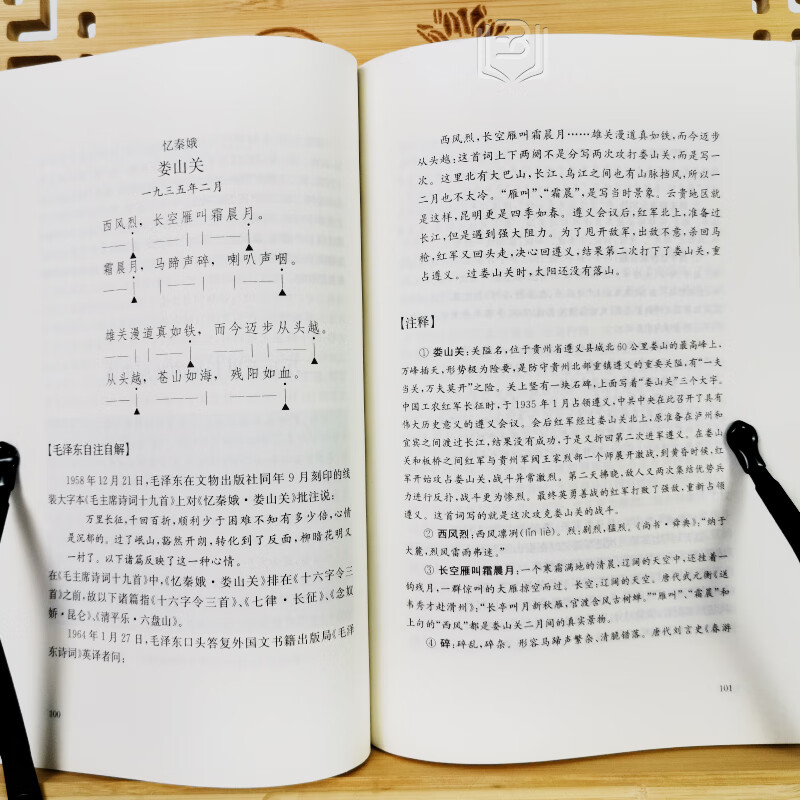 忆秦娥
娄山关
一九三五年二月
西风烈，长空雁叫霜晨月。
霜晨月，马蹄声碎，喇叭声咽。
雄关漫道真如铁，而今迈步从头越。
从头越，苍山如海，残阳如血。
【毛泽东自注自解】
1958年12月21日，毛泽东在文物出版社同年9月刻印的线
装大字本《毛主席诗词十九首》上对《忆秦娥·娄山关》批注说：
万里长征，千回百折，顺利少于困难不知有多少倍，心情
是沉郁的。过了岷山，豁然开朗，转化到了反面，柳暗花明又
一村了。以下诸篇反映了这一种心情。
在《毛主席诗词十九首》中，《忆秦娥·娄山关》排在《十六字令三
首》之前，故以下诸篇指《十六字令三首》、《七律·长征》、《念奴
娇·昆仑》、《清平乐·六盘山》。
1964年1月27日，毛泽东口头答复外国文书籍出版局《毛泽
东诗词》英译者问：
100
西风烈，长空雁叫霜晨月……雄关漫道真如铁，而今迈步
从头越；这首词上下两阕不是分写两次攻打娄山关，而是写一
次。这里北有大巴山，长江、乌江之间也有山脉挡风，所以一
二月也不太冷。“雁叫”、“霜晨”，是写当时景象。云贵地区就
是这样，昆明更是四季如春。遵义会议后，红军北上，准备过
长江，但是遇到强大阻力。为了甩开敌军，出敌不意，杀回马
枪，红军又回头走，决心回遵义，结果第二次打下了娄山关，重
占遵义。过娄山关时，太阳还没有落山。
【注释】
① 娄山关：关隘名，位于贵州省遵义县城北60公里娄山的最高峰上，
万峰插天，形势极为险要，是防守贵州北部重镇遵义的重要关隘，有“一夫
当关，万夫莫开”之险。关上竖有一块石碑，上面写着“娄山关”三个大字。
中国工农红军长征时，于1935年1月占领遵义，中共中央在此召开了具有
伟大历史意义的遵义会议。会后红军经过娄山关北上，原准备在泸州和
宜宾之间渡过长江，结果没有成功，于是又折回第二次进军遵义。在娄山
关和板桥之间红军与贵州军阀王家烈部一个师展开激战，到黄昏时候，红
军开始攻占娄山关，战斗异常激烈。第二天拂晓，敌人又两次集结优势兵
力进行反扑，战斗更为惨烈。最终英勇善战的红军打败了强敌，重新占领
遵义。这首词写的就是这次攻克娄山关的战斗。
② 西风烈：西风凛冽(lǐn liè)。烈：剧烈，猛烈。《尚书·舜典》：“纳于
大麓，烈风雷雨弗迷。”
③ 长空雁叫霜晨月：一个寒霜满地的清晨，辽阔的天空中，还挂着一
钩残月，一群惊叫的大雁掠空而过。长空：辽阔的天空。唐代武元衡《送
韦秀才赴滑州》：“长亭叫月新秋雁，官渡含风古树蝉。”“雁叫”、“霜晨”和
上句的“西风”都是娄山关二月间的真实景物。
④ 碎：碎乱，碎杂。形容马蹄声繁杂、清脆错落。唐代刘言史《春游
101